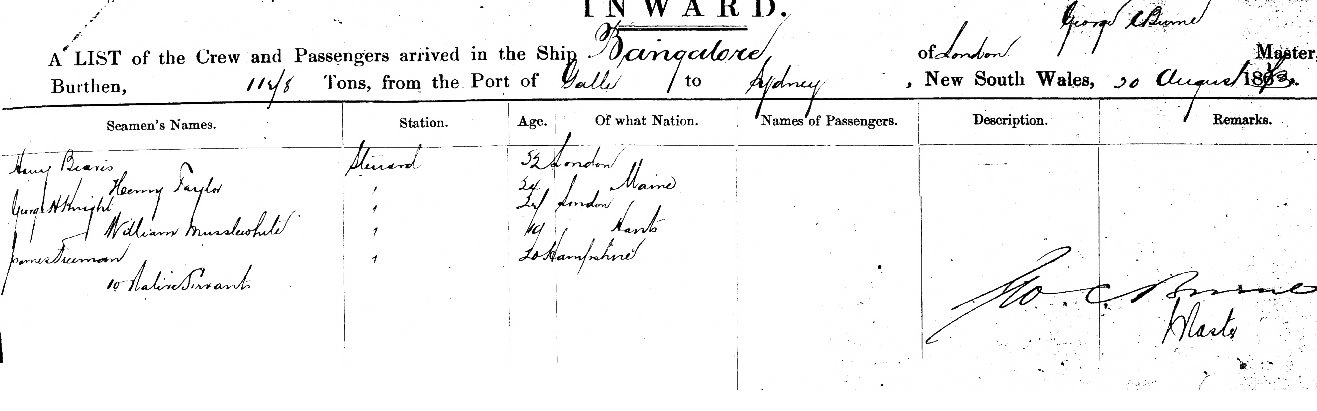 INWARD.
George C Burne
A LIST of the Crew and Passengers arrived in the Ship Bangalore of London Master,
Burthen, Tons, from the Port of Galle to Sydney , New South Wales, 20 August 186
Seamen's Names. Station. Age. Of what Nation. Names of Passengers. Description. Remarks.
Henry Steward 32 London
Henry Taylor " 24 Maine
George H Knight " London
William Musslewhite " 19 Hants
James Freeman " 20 Hampshire
10 Native Servants
Geo. C. Burne
Master